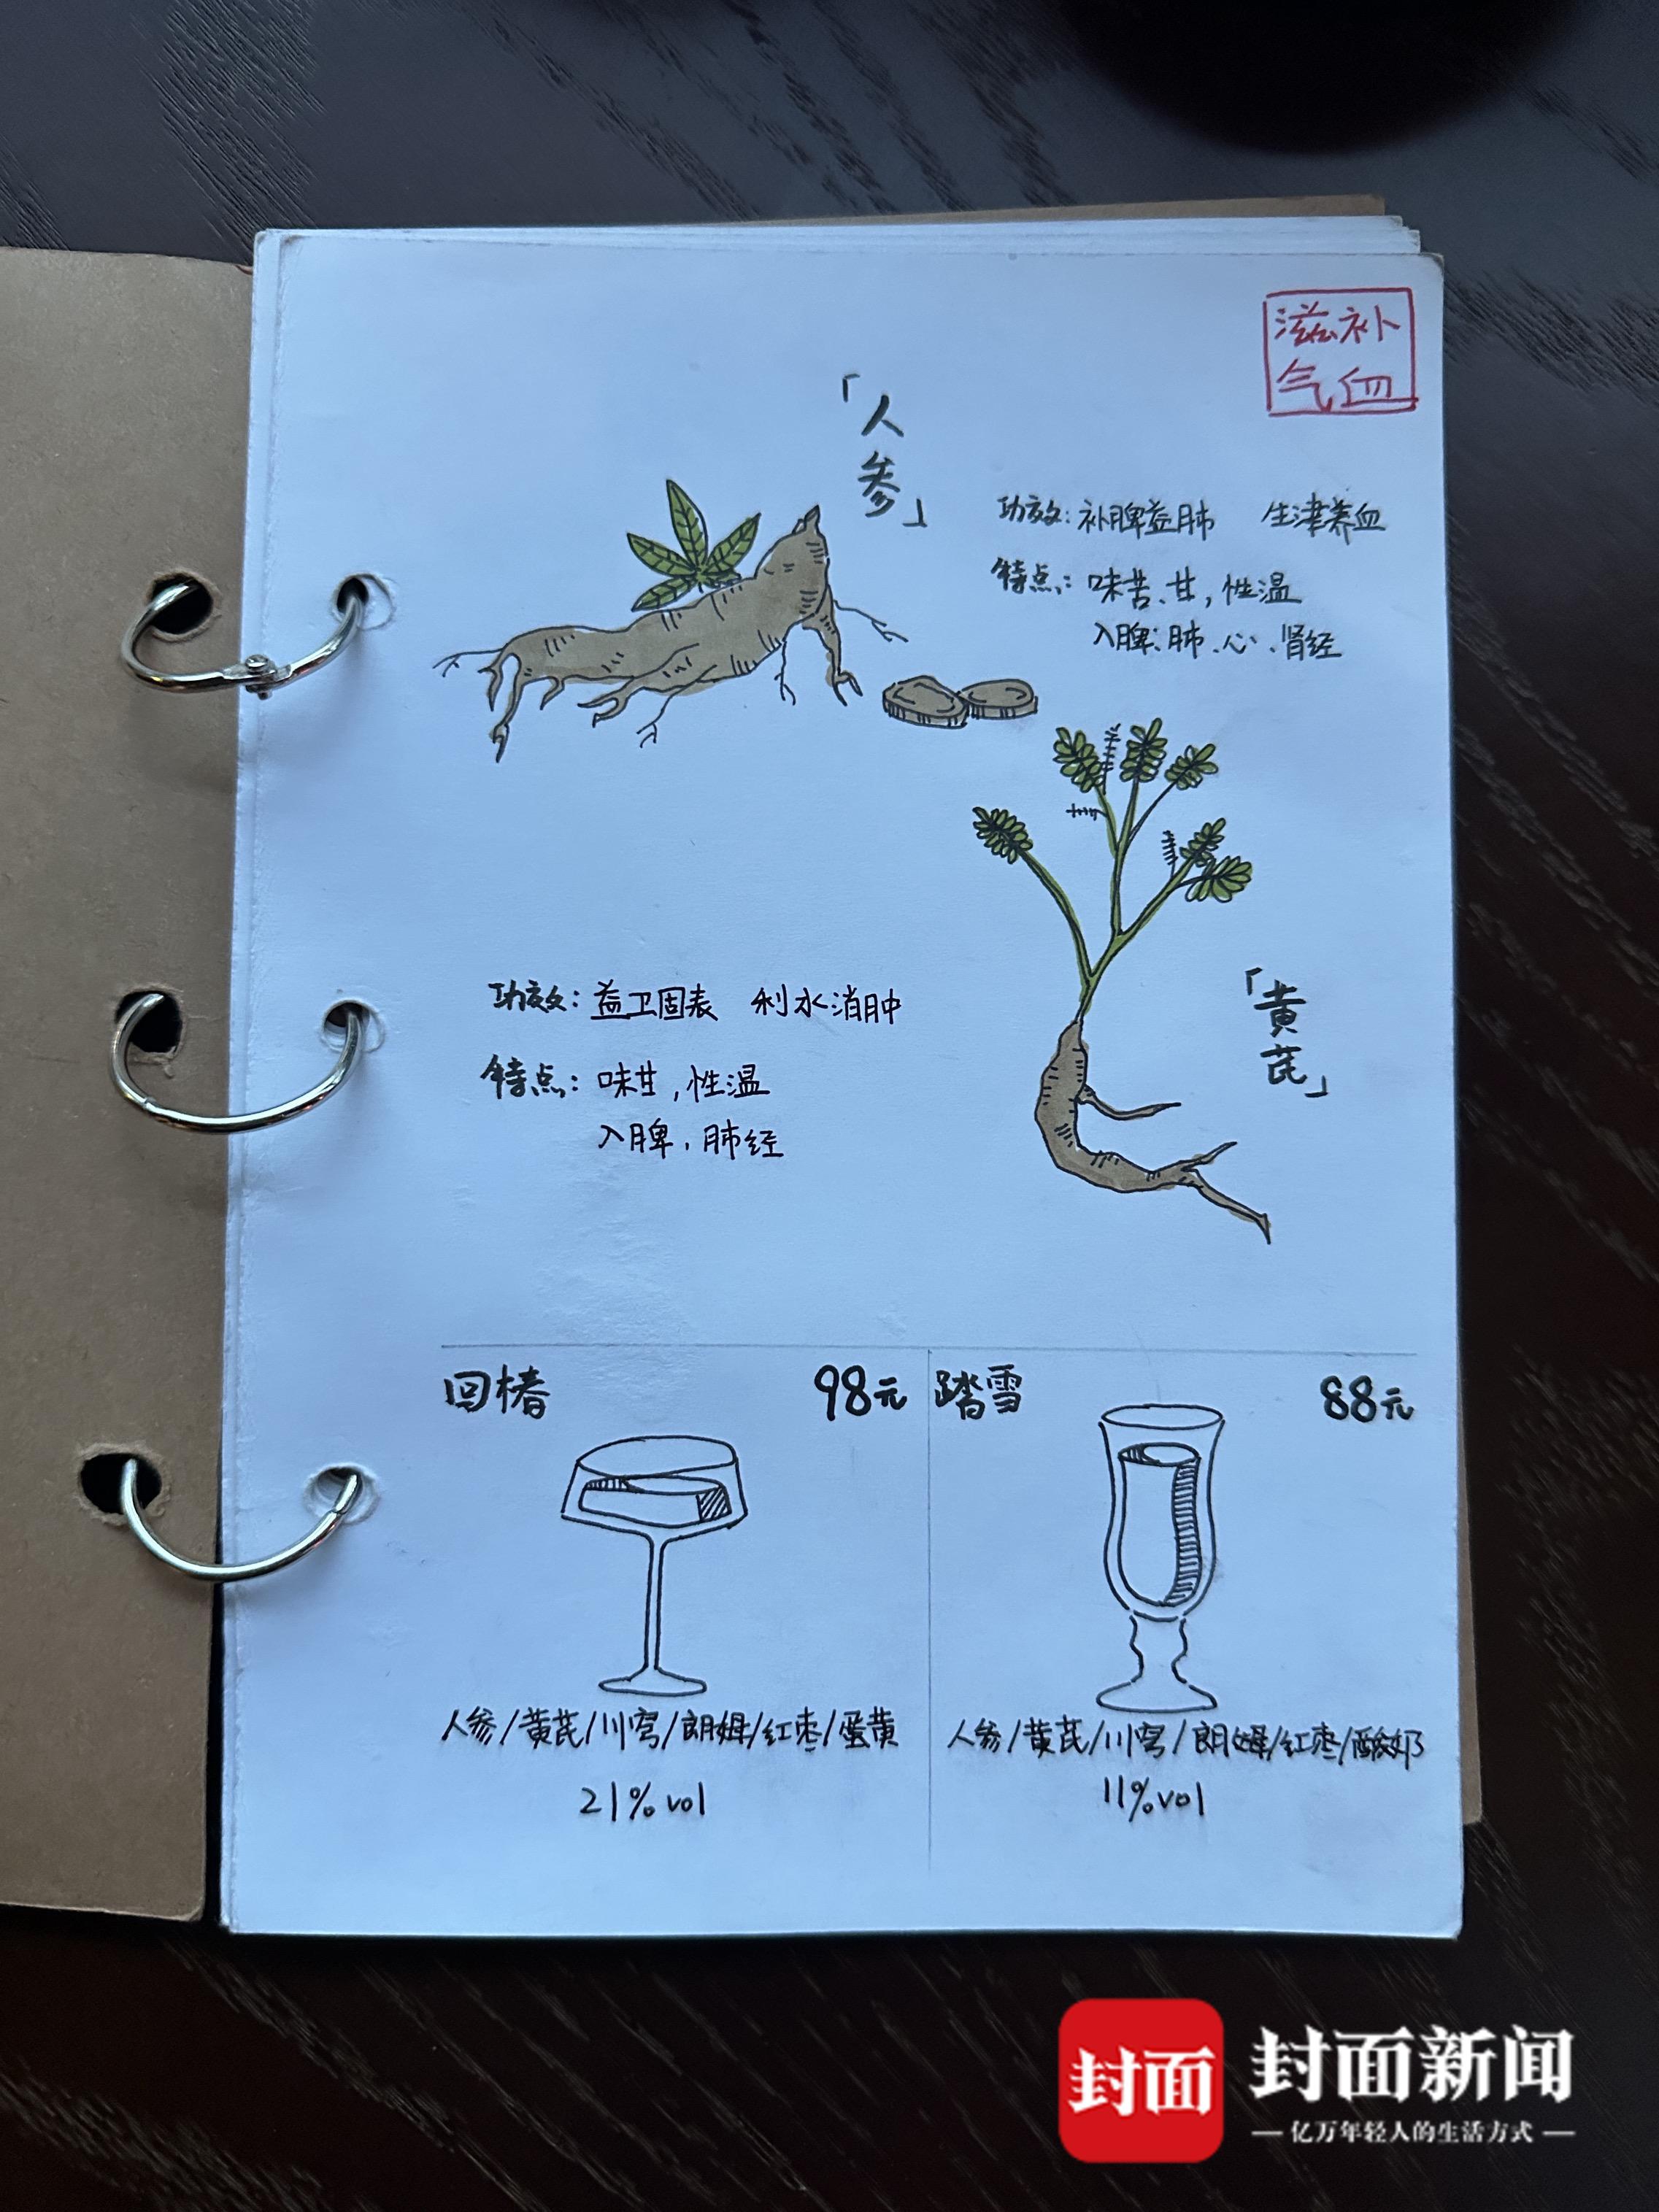 滋补
气血
「人参」
功效：补脾益肺 生津养血
特点：味苦、甘，性温
入脾、肺、心、肾经
「黄芪」
功效：益卫固表 利水消肿
特点：味甘，性温
入脾，肺经
回椿 98元
人参/黄芪/川穹/朗姆/红枣/蛋黄
21%vol
踏雪 88元
人参/黄芪/川穹/朗姆/红枣/酸奶
11%vol
封面
封面新闻
亿万年轻人的生活方式